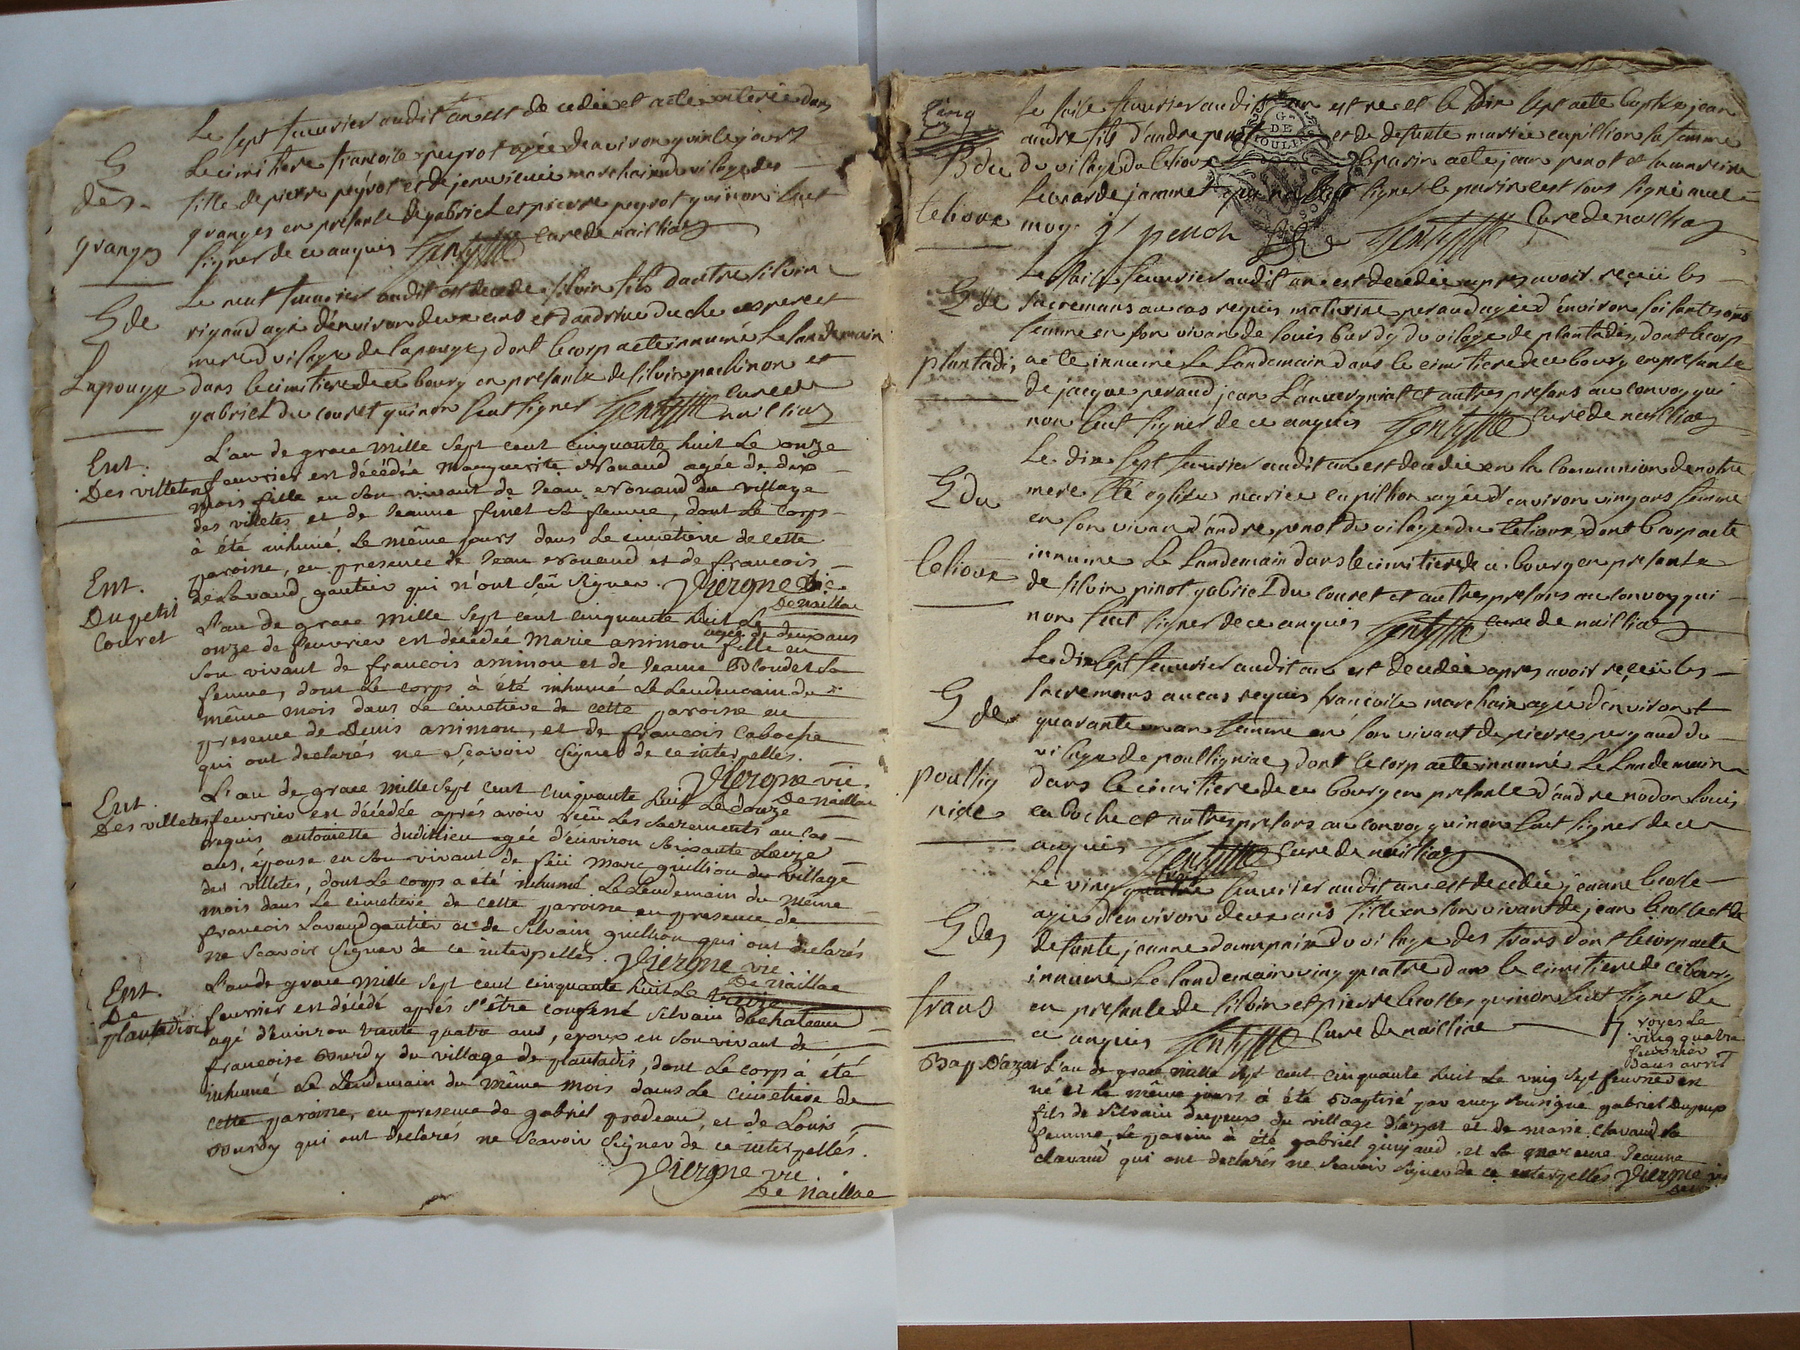 Le sept feuvrier audit an est decedée et acte enterée dans
Le cimitiere francoise peyrot agée deaviron quinle jours
fille de pierre peyrot et de jenevieuie marchain du vilage des
granges en presante de gabriel et pierre peyrot qui non seut
signer de ce anquis Gentyttte Curé de nailliac
E
des
granges
Le neuf feuvrier audit est decede silvin fils d'autre silvin
rigaud agé d'environ deux ans et d'andrive duche ces pere et
mere du vilage de lapouge, dont le corp acte innumé Le landemain
dans le cimitiere de ce bourg en presante de silvin pachinon et
gabriel du couret qui non seut signer Gentyttte Curé de
nailliac
E de
Lapouge
L'an de grace mille sept cent cinquante huit Le onze
feuvrier est décédée Marguerite Nouaud agée de dix
mois fille en son vivant de Jean Nouaud du village
des villetes et de Jeanne finet sa femme, dont Le corps
à été inhumé Le même jours dans Le cimetiere de cette
paroise, en presence de Jean Nouaud et de francois
De Lavaud gautier qui n'ont sçu signer. Viergne vic.
De naillac
Ent.
Des villetes
L'an de grace mille sept cent cinquante huit Le
onze de feuvrier est décédée Marie anninon agée de deux ans fille en
son vivant de francois anninon et de Jeanne Blondet sa
femme, dont Le corps à été inhumé Le Lendemain du
même mois dans Le cimetiere de cette paroise en
presence de Denis anninon, et de francois Caboche
qui ont declarés ne sçavoir signer de ce interpellés.
Viergne vic.
De naillac
Ent.
Du petit
Couret
L'an de grace mille sept cent cinquante huit Le douze
feuvrier est décédée aprés avoir reçu Les sacrements au cas
requis, antoinette dudillieu agée d'environ soixante treize
ans, épouse en son vivant de feü Marc guillion du village
des villetes, dont Le corps a été inhumé Le Lendemain du même
mois dans Le cimetiere de cette paroise en presence de
francois Lavaud gautier et de Silvain guillion qui ont declarés
ne sçavoir signer de ce interpellés. Viergne vic.
De naillac
Ent.
Des villetes
L'an de grace mille sept cent cinquante huit Le treize
feuvrier est décédé aprés s'être confessé Silvain duchateau
agé d'environ trante quatre ans, epoux en son vivant de
francoise Burdy du village de plantadis, dont Le corp à été
inhumé Le Lendemain du même mois dans Le cimetiere de
cette paroise, en presence de gabriel gradeau, et de Louis
Burdy qui ont declarés ne sçavoir signer de ce interpellés.
Viergne vic.
De naillac
Ent.
De
plantadis
Cinq
Le saise feuvrier audit an est ne et le Dix sept acte baptisé jean
andre fils d'andre penot et de defunte mariee cupillion sa femme
du vilage du lelioux Le parin acte jean penot et la mareine
Leonarde jammet signer le parin cest sous signé avec
moy j penoh Gentyttte Curé de nailliac
B du
lelioux
G^N
DE
MOULINS
Le saise feuvrier audit an est decedée apres avoir reçeü les
sacremans au cas reques maturine peraud agée d'environ soisante ans
femme en son vivan de louis burdy du vilage de plantadis, dont le corp
acte innumé Le landemain dans le cimitiere de ce bourg en presante
de jacque peraud jean L'auvergniat et autres presans au convoy qui
non seut signer de ce anquis Gentyttte Curé de nailliac
E de
plantadis
Le dix sept feuvrier audit an est decedée en la Communion de notre
mere S^te église mariee cupillion agée d'environ vingt ans femme
en son vivan d'andre penot du vilage du lelioux, dont le corp acte
innume Le landemain dans le cimitiere de ce bourg en presante
de silvin pinot gabriel du couret et autre presans au convoy qui
non seut signer de ce anquis Gentyttte Curé de nailliac
E du
lelioux
Le dix sept feuvrier audit an est decedée apres avoir reçeü les
sacremans au cas reques françoise marchain agée d'environt
quarante un an femme en son vivant de pierre peyraud du
vilage de poulligniac, dont le corp acte innumé Le landemain
dans le cimitiere de ce bourg en presante d'andre nadon louis
caboche et autres presans au convoy qui non seut signer de ce
anquis Gentyttte Curé de nailliac
E de
poullig
niac
Le vingt trois feuvrier audit an est decedée jeanne lecolle
agée d'environ deux ans fille en son vivant de jean lecolle et de
defunte jeanne dauphain du vilage des frans dont le corp acte
innumé Le landemain ving quatre dans le cimitiere de ce bourg
en presante de silvin et pierre lecolles qui non seut signer de
ce anquis Gentyttte Curé de nailliac
E des
frans
voyes Le
ving quatre
feuvrier
dans avril
Bap. D'azat
L'an de grace mille sept cent cinquante huit Le vingt sept feuvrier est
né et le même jours à été Baptisé par moy soussigné gabriel Dupeux
fils de Silvain dupeux du village d'azat et de marie Clavaud sa
femme, Le parain à été gabriel guignaud, et La maraine Jeanne
clavaud qui ont declarés ne sçavoir signer de ce interpellés Viergne vic